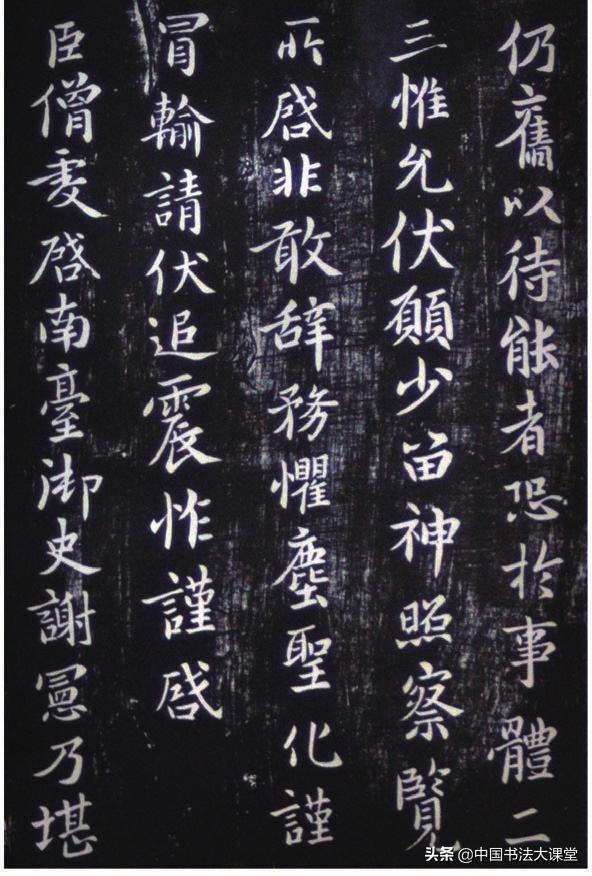 仍舊以待能者恐於事體二
三惟允伏願少留神照察覽
所啓非敢辞務懼塵聖化謹
冒輸請伏追震怍謹啓
臣僧虔啓南臺御史謝憲乃堪
头条 @中国书法大课堂